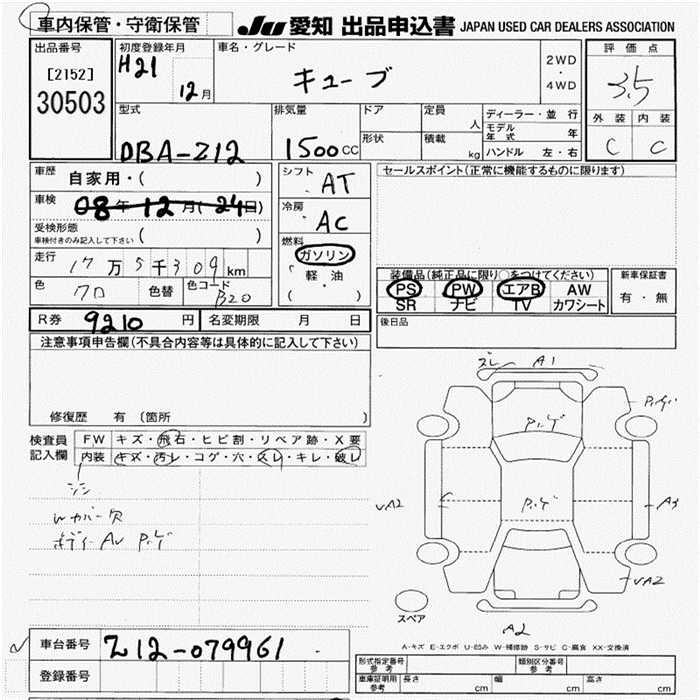 車内保管・守衛保管
JU 愛知 出品申込書 JAPAN USED CAR DEALERS ASSOCIATION
出品番号
[2152]
30503
初度登録年月
H21
12月
車名・グレード
キューブ
2WD
・
4WD
評価点
3.5
外装 内装
C C
型式
DBA-Z12
排気量
1500CC
ドア
形状
定員
人
積載
kg
ディーラー・並行
モデル年式 年
ハンドル 左・右
車歴
自家用・( )
車検
08年12月(24日)
受検形態
車検付きのみ記入して下さい ( )
走行
17万5千309km
色
クロ
色替
色コード
B20
シフト
AT
冷房
AC
燃料
ガソリン
・
軽・油
( )
セールスポイント(正常に機能するものに限ります)
装備品(純正品に限り〇をつけてください)
PS PW エアB AW
SR ナビ TV カワシート
新車保証書
有・無
後日品
R券 9210 円
名変期限 月 日
注意事項申告欄(不具合内容等は具体的に記入して下さい)
修復歴 有(箇所 )
検査員
記入欄
FW キズ・飛石・ヒビ割・リペア跡・X要
内装 キズ・汚レ・コゲ・穴・スレ・キレ・破レ
シミ
Wカバー欠
ボディー AU P.ハゲ
ズレ A1
P.ハゲ
P.ハゲ
P.ハゲ
√A2
C
A3
√A2
A2
スペア
A-キズ E-エクボ U-凹み W-補修跡 S-サビ C-腐食 XX-交換済
車台番号
Z12-079961
登録番号
形式指定番号
参考
類別区分番号
参考
車庫証明用
参考
長さ cm
幅 cm
高さ cm